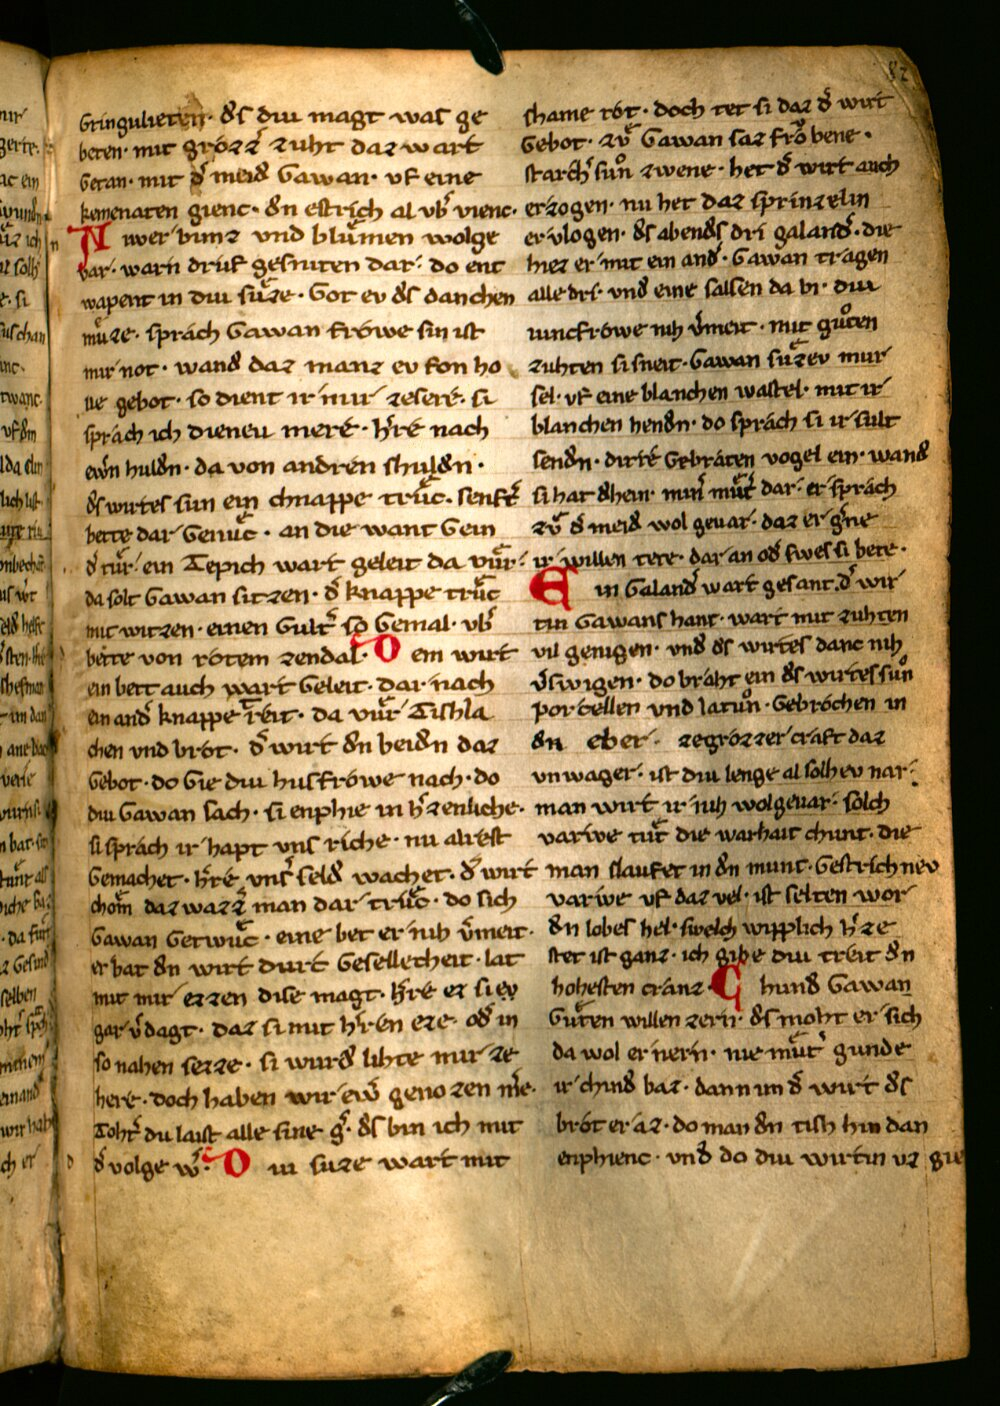 82
Gringulieten · ds̄ diu magt was ge
beten · mit grozzˢ zuht daz wart
Getan · mit dˢ meidˢ Gawan · vf eine
kemenaten gienc · dˢn estrich al vbˢ vienc ·
Niwer binz vnd blůmen wolge
var · warn druf gesniten dar · do ent
wapent in diu sůze · Got ev dˢs danchen
můze · sprach Gawan frowe sin ist
mir not · wandˢ daz manz ev fon ho
ue gebot · so dient ir mir zesere · si
sprach ich dieneu mere · hˢre nach
ewˢn huldˢn · da von andren shuldˢn ·
dˢs wirtes sun ein chnappe trůc · senftˢ
bette dar Genůc · an die want Gein
dˢ tůr · ein Tepich wart geleit da vůr ·
da solt Gawan sitzen · dˢ knappe trůc
mit witzen · einen Gultˢ so Gemal · vbˢ
bette von rotem zendal · Dem wirt
ein bett auch wart Geleit · dar nach
ein andˢ knappe treit · da vůr Tishla
chen vnd brot · dˢ wirt dˢn beidˢn daz
Gebot · do Gie diu husfrowe nach · do
diu Gawan sach · si enphie in hˢzenliche ·
si sprach ir hapt vns riche · nu alrest
Gemachet · hˢre vnsˢ seldˢ wachet · dˢ wirt
chom daz wazzˢ man dar trůc · do sich
Gawan Getwůc · eine bet er nih vˢmeit ·
er bat dˢn wirt durt Gesellecheit · lat
mit mir ezzen dise magt · hˢre ez si ev
gar vˢdagt · daz si mit hˢren eze · odˢ in
so nahen sezze · si wurdˢ lihte mir ze
here · doch haben wir ewˢ genozen mˢe ·
Tohtˢ du laist alle sine gˢ · dˢs bin ich mit
dˢ volge wˢ · Diu suze wart mit
shame rot · doch tet si daz dˢ wirt
Gebot · zů Gawan saz fro bene ·
starchˢ sůn zwene · het dˢ wirt auch
erzogen · nu het daz sprinzelin
ervlogen · dˢs abendˢs dri galandˢ · die
hiez er mit ein andˢ · Gawan tragen
alle dri · vndˢ eine salsen da bi · diu
iuncfrowe nih vˢmeit · mit gůten
zuhten si sneit · Gawan sůzev mur
sel · vf eine blanchen wastel · mit ir
blanchen hendˢn · do sprach si ir sult
sendˢn · dirre Gebraten vogel ein · wandˢ
si hat dˢhein · minˢ můtˢ dar · er sprach
zů dˢ meidˢ wol gevar · daz er gˢne
ir willen tete · dar an odˢ swes si bete ·
Ein Galandˢ wart gesant · dˢ wir
tin Gawans hant · wart mit zuhten
vil genigen · vndˢ dˢs wirtes danc nih
vˢswigen · do braht ein dˢs wirtes sůn
portellen vnd latůn · Gebrochen in
dˢn eber · zegrozzer craft daz
vnwager · ist diu lenge al solhev nar ·
man wirt ir nih wolgeuar · solch
varwe tůt die warhait chunt · die
man slaufet in dˢn munt · Gestrichnev
varwe vf daz vel · ist selten wor
dˢn lobes hel · swelch wipplich hˢze
stet ist ganz · ich gihe diu treit dˢn
hohesten cranz · Chundˢ Gawan
Gůten willen zern · dˢs moht er sich
da wol ernern · nie můtˢ gunde
ir chindˢ baz · dann im dˢ wirt dˢs
brot er az · do man dˢn tish hin dan
enphienc · vndˢ do diu wirtin vz gie